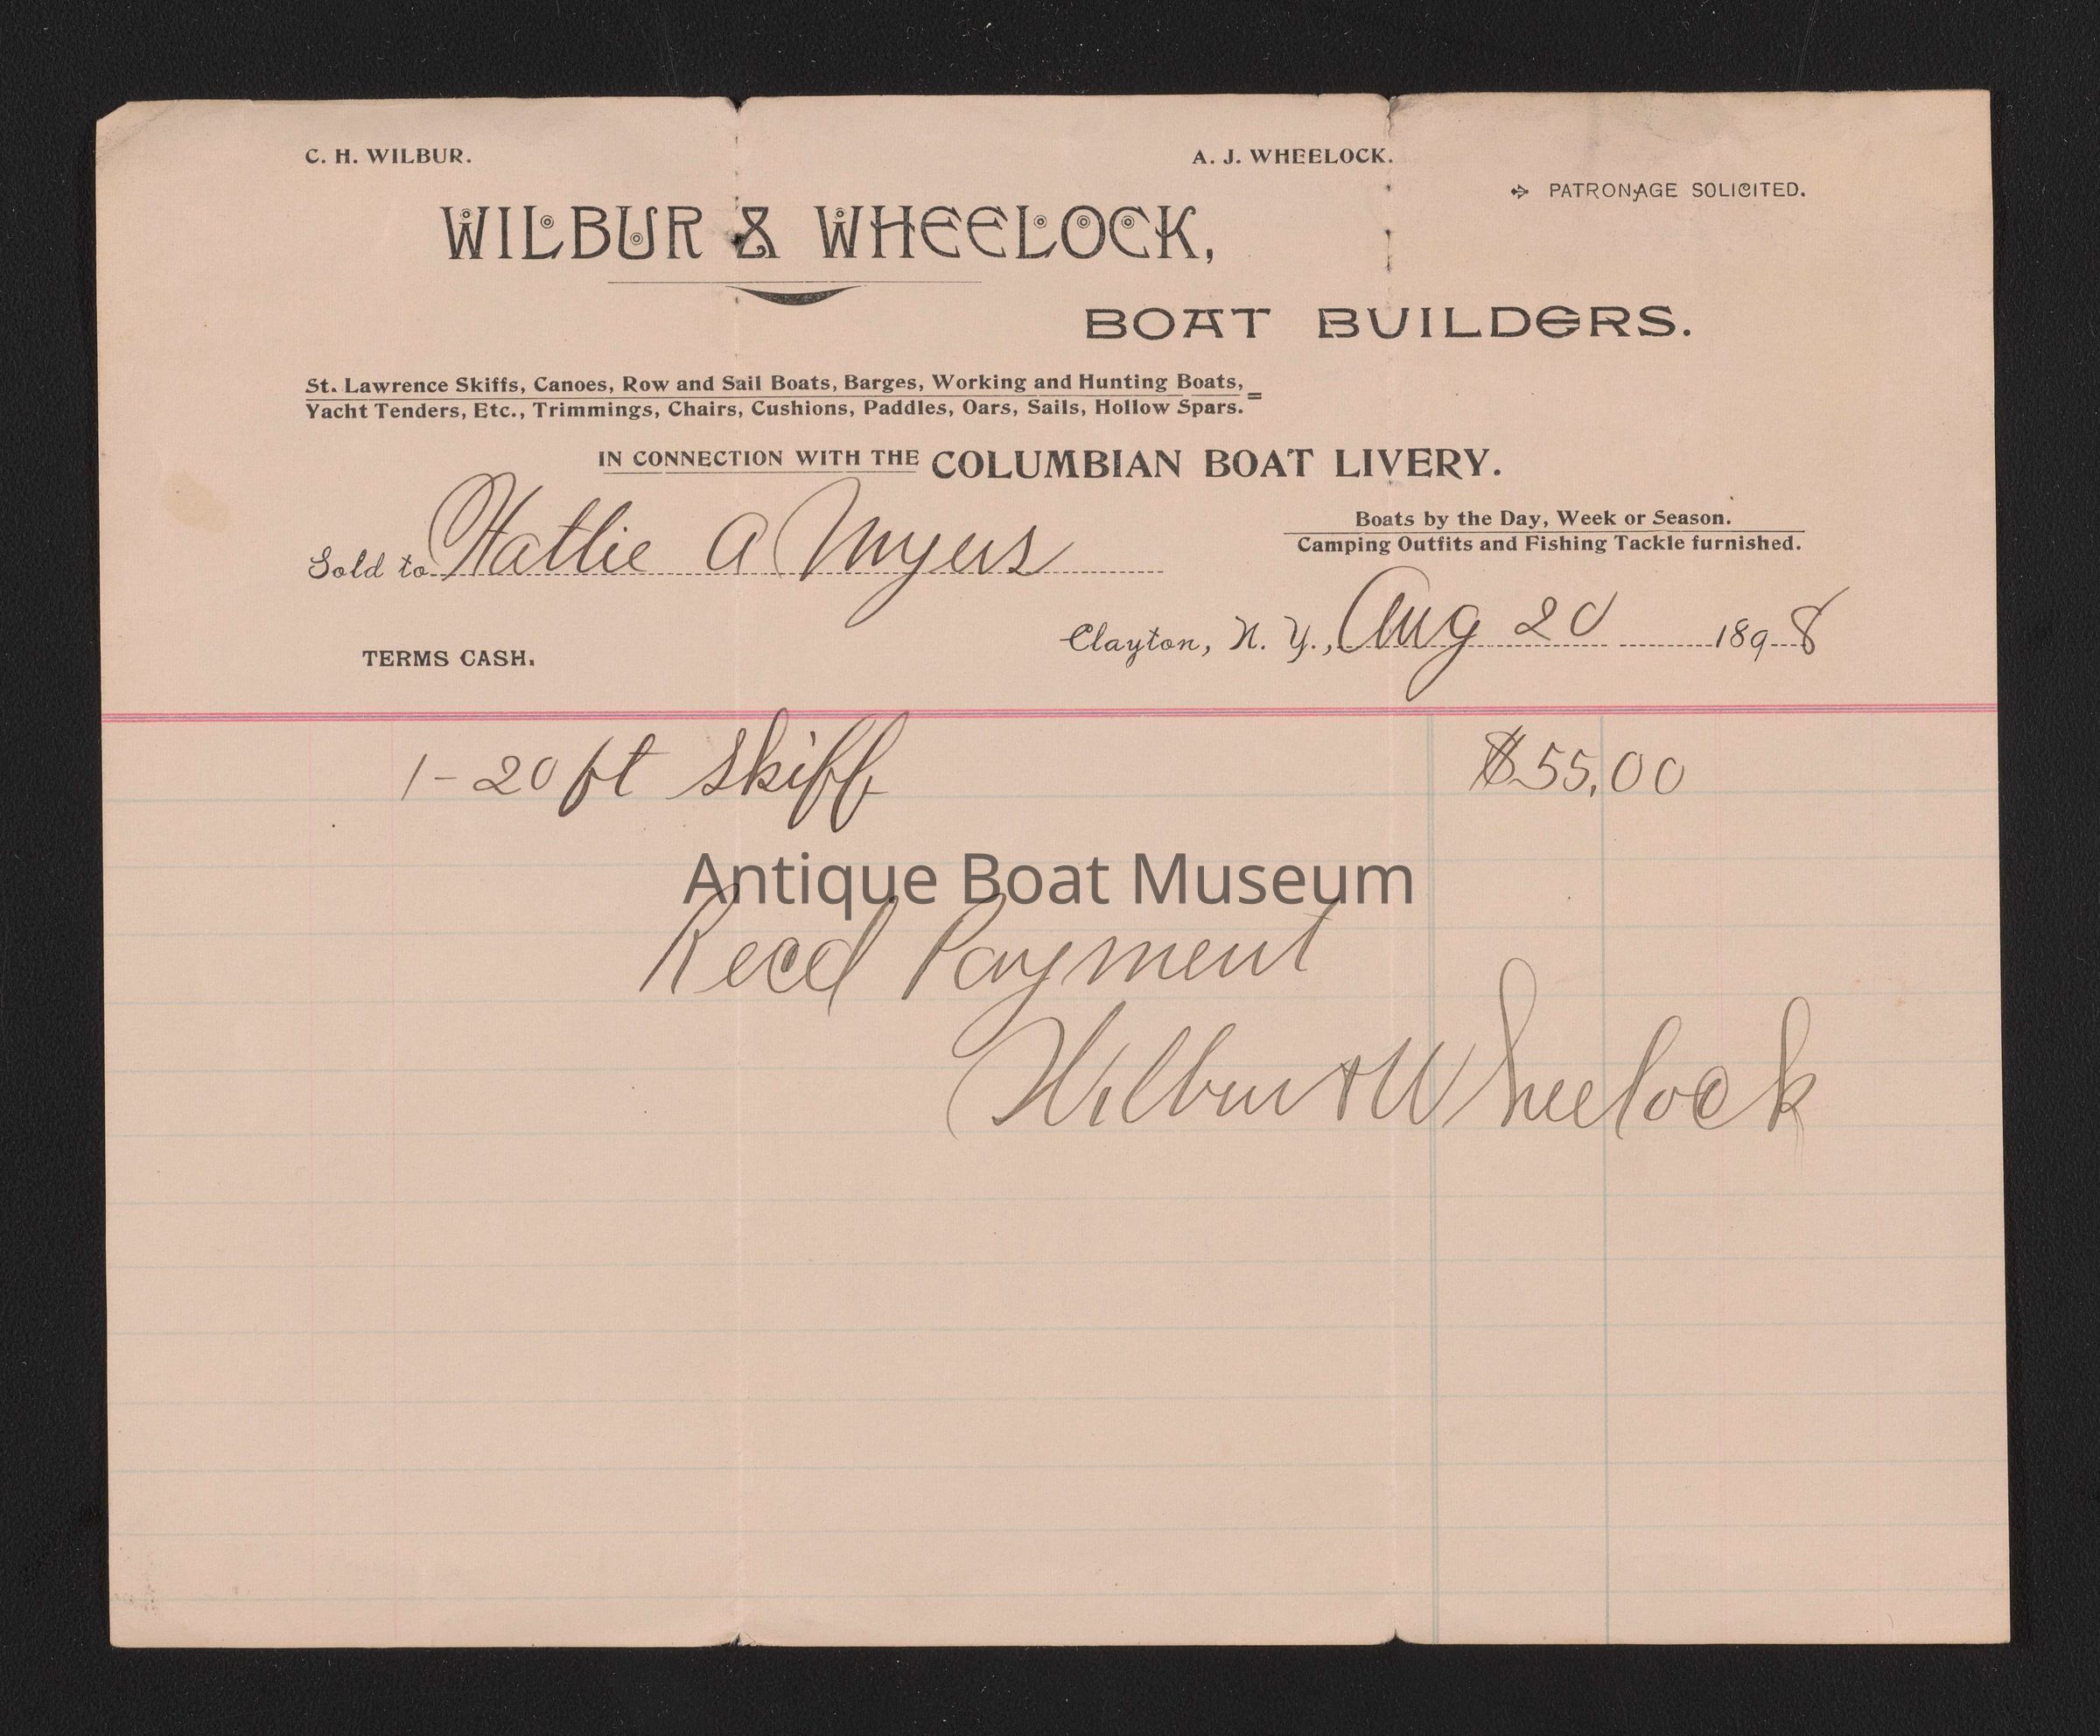 C. H. WILBUR. A. J. WHEELOCK.
PATRONAGE SOLICITED.
WILBUR & WHEELOCK,
BOAT BUILDERS.
St. Lawrence Skiffs, Canoes, Row and Sail Boats, Barges, Working and Hunting Boats,
Yacht Tenders, Etc., Trimmings, Chairs, Cushions, Paddles, Oars, Sails, Hollow Spars.
IN CONNECTION WITH THE COLUMBIAN BOAT LIVERY.
Boats by the Day, Week or Season.
Camping Outfits and Fishing Tackle furnished.
Sold to Hattie A Myers
Clayton, N. Y., Aug 20 1898
TERMS CASH.
1 - 20 ft Skiff $55.00
Antique Boat Museum
Recd Payment
Wilbur & Wheelock